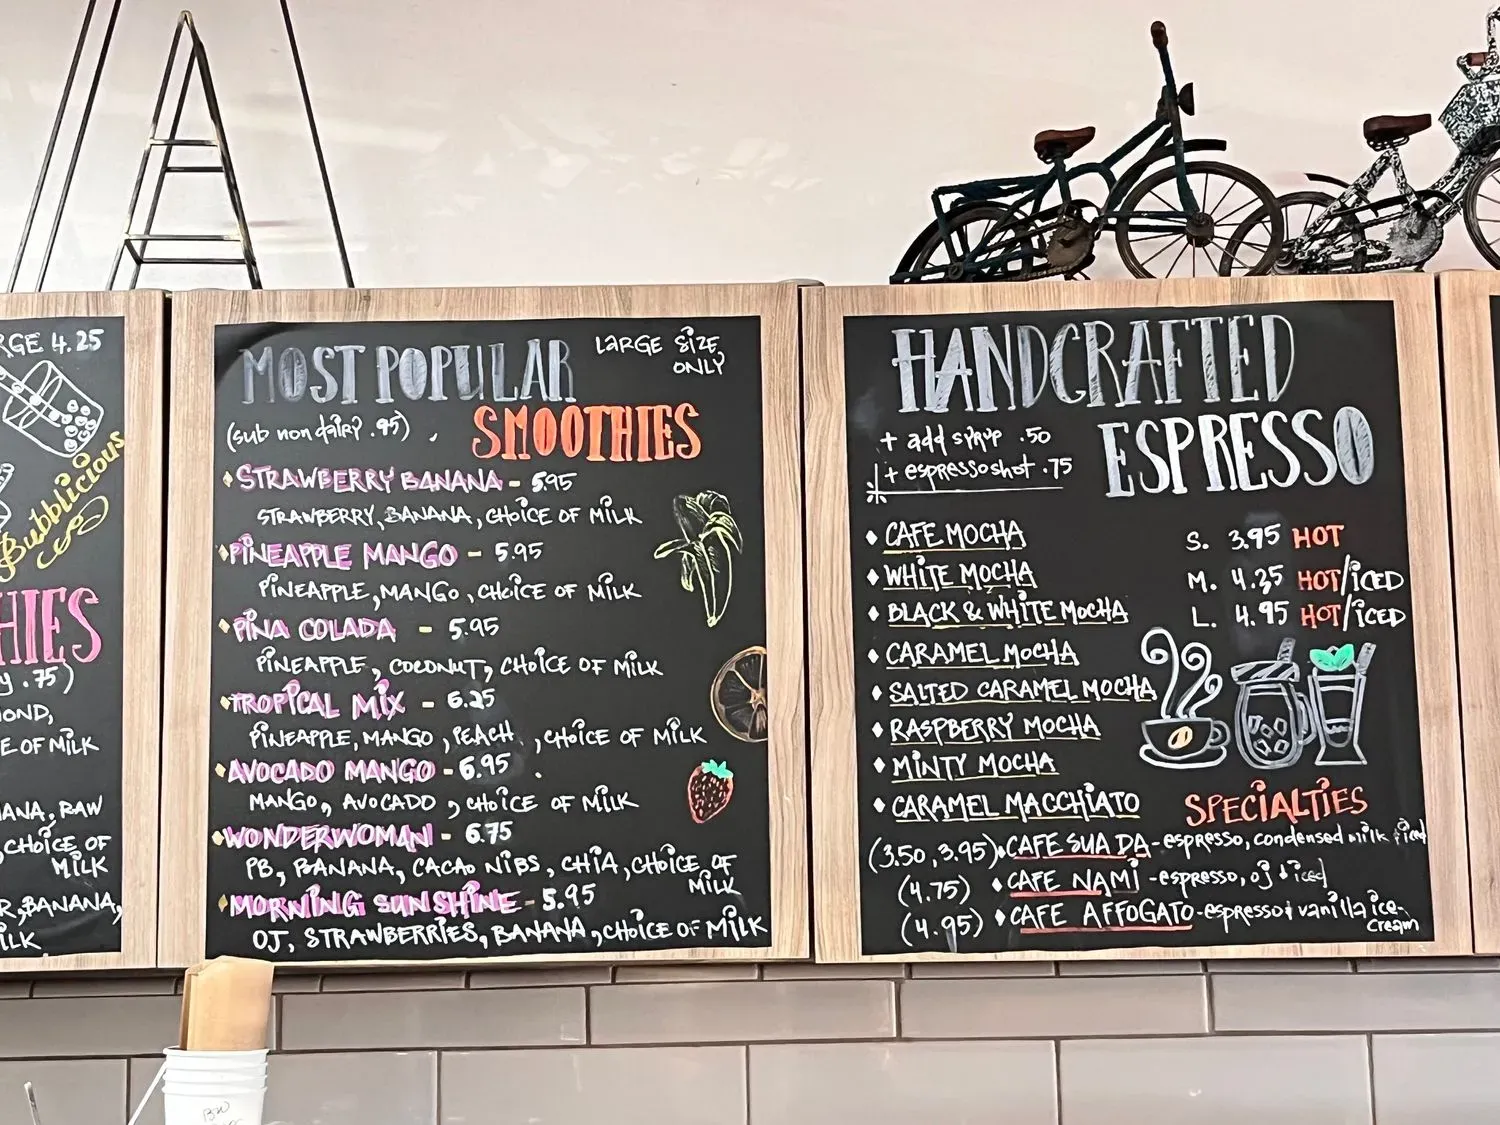 RGE 4.25
Bubblicious
HIES
y .75)
OND,
E OF MILK
ANA, RAW
, CHOICE OF
MILK
R, BANANA,
ILK
MOST POPULAR
LARGE SIZE
ONLY
(sub non dairy .95)
SMOOTHIES
STRAWBERRY BANANA - 5.95
STRAWBERRY, BANANA, CHOICE OF MILK
PINEAPPLE MANGO - 5.95
PINEAPPLE, MANGO, CHOICE OF MILK
PINA COLADA - 5.95
PINEAPPLE, COCONUT, CHOICE OF MILK
TROPICAL MIX - 6.25
PINEAPPLE, MANGO, PEACH, CHOICE OF MILK
AVOCADO MANGO - 6.95
MANGO, AVOCADO, CHOICE OF MILK
WONDERWOMAN - 6.75
PB, BANANA, CACAO NIBS, CHIA, CHOICE OF
MILK
MORNING SUNSHINE - 5.95
OJ, STRAWBERRIES, BANANA, CHOICE OF MILK
HANDCRAFTED
ESPRESSO
+ add syrup .50
+ espresso shot .75
CAFE MOCHA
WHITE MOCHA
BLACK & WHITE MOCHA
CARAMEL MOCHA
SALTED CARAMEL MOCHA
RASPBERRY MOCHA
MINTY MOCHA
CARAMEL MACCHIATO
S. 3.95 HOT
M. 4.35 HOT/ICED
L. 4.95 HOT/ICED
SPECIALTIES
(3.50, 3.95) CAFE SUA DA - espresso, condensed milk, iced
(4.75) CAFE NAMI - espresso, oj + iced
(4.95) CAFE AFFOGATO - espresso + vanilla ice-
cream